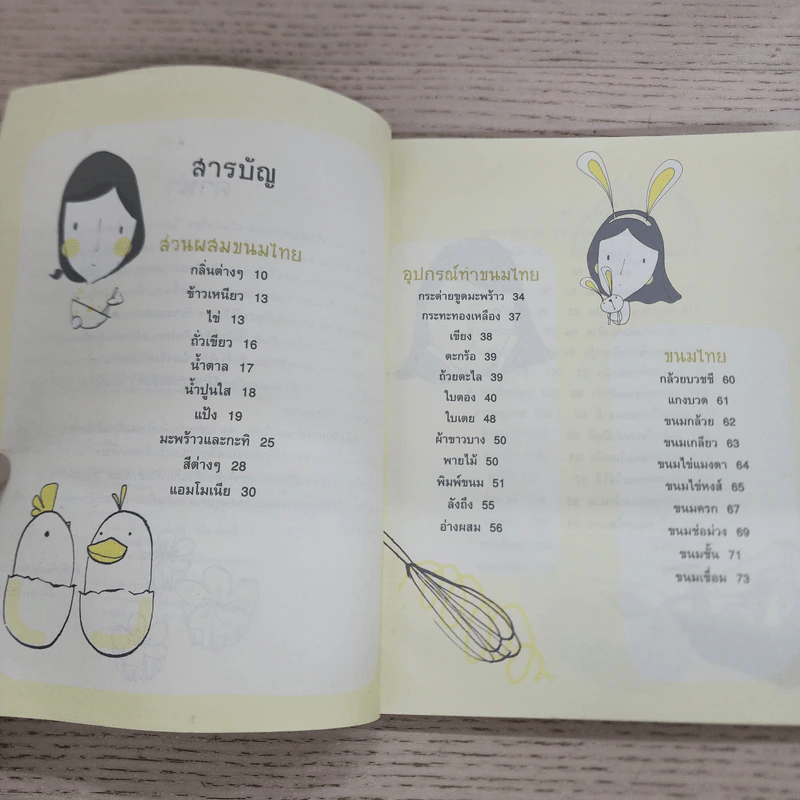 สารบัญ
ส่วนผสมขนมไทย
กลิ่นต่างๆ 10
ข้าวเหนียว 13
ไข่ 13
ถั่วเขียว 16
น้ำตาล 17
น้ำปูนใส 18
แป้ง 19
มะพร้าวและกะทิ 25
สีต่างๆ 28
แอมโมเนีย 30
อุปกรณ์ทำขนมไทย
กระต่ายขูดมะพร้าว 34
กระทะทองเหลือง 37
เขียง 38
ตะกร้อ 39
ถ้วยตะไล 39
ใบตอง 40
ใบเตย 48
ผ้าขาวบาง 50
พายไม้ 50
พิมพ์ขนม 51
ลังถึง 55
อ่างผสม 56
ขนมไทย
กล้วยบวชชี 60
แกงบวด 61
ขนมกล้วย 62
ขนมเกลียว 63
ขนมไข่แมงดา 64
ขนมไข่หงส์ 65
ขนมครก 67
ขนมช่อม่วง 69
ขนมชั้น 71
ขนมเชื่อม 73